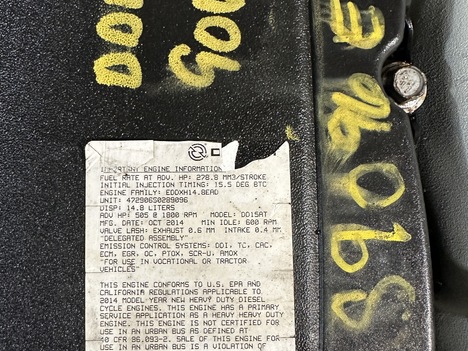 DOO
GOO
E
89096
IMPORTANT ENGINE INFORMATION
FUEL RATE AT ADV. HP: 278.8 MM3/STROKE
INITIAL INJECTION TIMING: 15.5 DEG BTC
ENGINE FAMILY: EDDXH14.8EAD
UNIT: 472906S0289096
DISP: 14.8 LITERS
ADV HP: 505 @ 1800 RPM MODEL: DD15AT
MFG. DATE: OCT 2014 MIN IDLE: 600 RPM
VALVE LASH: EXHAUST 0.6 MM INTAKE 0.4 MM
"DELEGATED ASSEMBLY"
EMISSION CONTROL SYSTEMS: DDI, TC, CAC,
ECM, EGR, OC, PTOX, SCR-U, AMOX
"FOR USE IN VOCATIONAL OR TRACTOR
VEHICLES"
THIS ENGINE CONFORMS TO U.S. EPA AND
CALIFORNIA REGULATIONS APPLICABLE TO
2014 MODEL YEAR NEW HEAVY DUTY DIESEL
CYCLE ENGINES. THIS ENGINE HAS A PRIMARY
SERVICE APPLICATION AS A HEAVY HEAVY-DUTY
ENGINE. THIS ENGINE IS NOT CERTIFIED FOR
USE IN AN URBAN BUS AS DEFINED AT
40 CFR 86.093-2. SALE OF THIS ENGINE FOR
USE IN AN URBAN BUS IS A VIOLATION OF